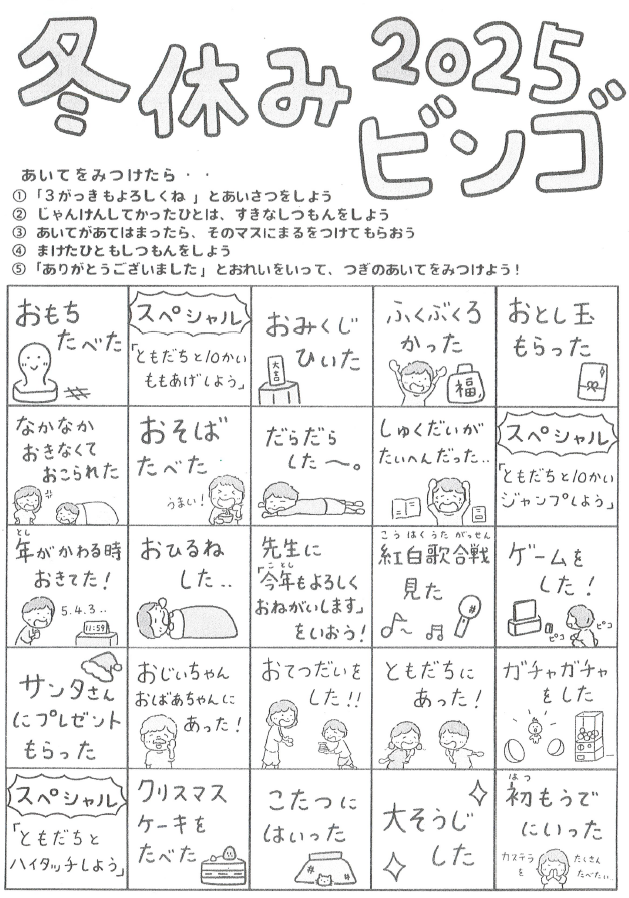 冬休み
2025
ビンゴ
あいてをみつけたら・・
①「3がっきもよろしくね 」とあいさつをしよう
② じゃんけんしてかったひとは、すきなしつもんをしよう
③ あいてがあてはまったら、そのマスにまるをつけてもらおう
④ まけたひともしつもんをしよう
⑤「ありがとうございました」とおれいをいって、つぎのあいてをみつけよう！
おもち
たべた
スペシャル
「ともだちと10かい
ももあげしよう」
おみくじ
ひいた
大吉
ふくぶくろ
かった
福
おとし玉
もらった
なかなか
おきなくて
おこられた
おそば
たべた
うまい！
だらだら
した〜。
しゅくだいが
たいへんだった..
スペシャル
「ともだちと10かい
ジャンプしよう」
とし
年がかわる時
おきてた！
5.4.3..
11:59
おひるね
した..
先生に
ことし
「今年もよろしく
おねがいします」
をいおう！
こうはくうたがっせん
紅白歌合戦
見た
ゲームを
した！
ピコ
ピコ
サンタさん
にプレゼント
もらった
おじいちゃん
おばあちゃんに
あった！
おてつだいを
した!!
ともだちに
あった！
ガチャガチャ
をした
スペシャル
「ともだちと
ハイタッチしよう」
クリスマス
ケーキを
たべた
こたつに
はいった
大そうじ
した
はつ
初もうで
にいった
カステラ
を
たくさん
たべたい..